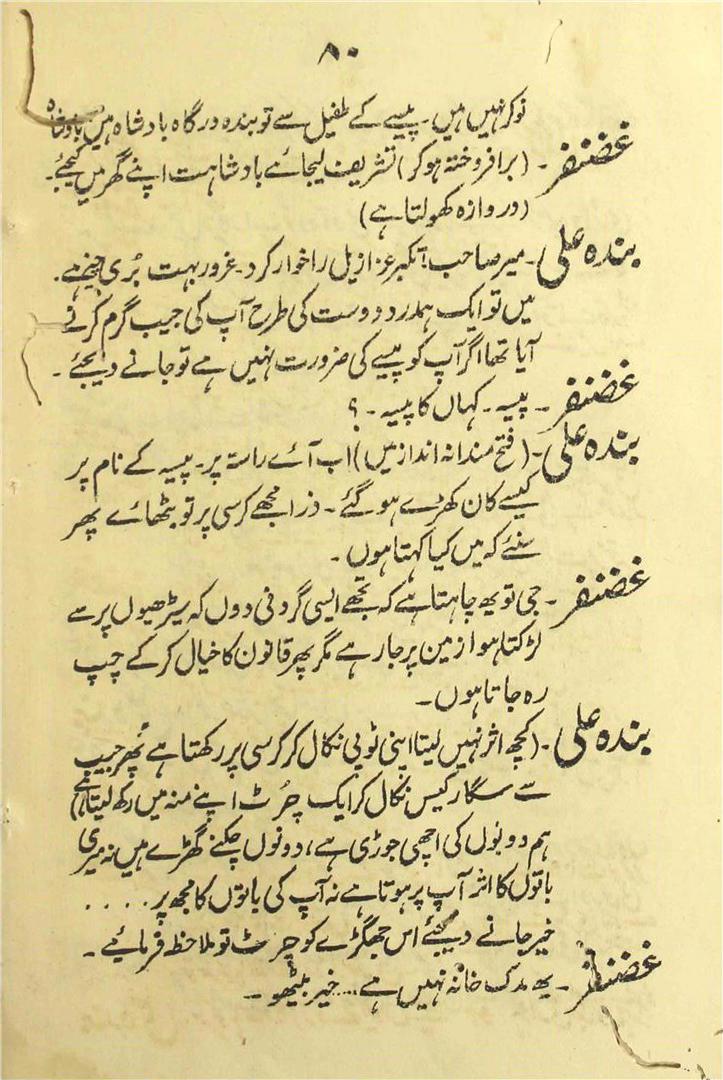 ۸۰
نوکر نہیں ہیں۔ پیسے کے طفیل سے تو بندہ درگاہ بادشاہ ہیں بادشاہ
غضنفر۔ (برافروختہ ہوکر) تشریف لیجائے بادشاہت اپنے گھر میں کیجئے۔
(دروازہ کھولتا ہے)
بندہ علی۔ میر صاحب! تکبر عزازیل را خوار کرد۔ غرور بہت بُری چیز ہے۔
میں تو ایک ہمدرد دوست کی طرح آپ کی جیب گرم کرنے
آیا تھا اگر آپ کو پیسے کی ضرورت نہیں ہے تو جانے دیجئے۔
غضنفر۔ پیسہ۔ کہاں کا پیسہ۔؟
بندہ علی۔ (فتح مندانہ انداز میں) اب آئے راستہ پر۔ پیسہ کے نام پر
کیسے کان کھڑے ہو گئے۔ ذرا مجھے کرسی پر تو بٹھائے پھر
سنئے کہ میں کیا کہتا ہوں۔
غضنفر۔ جی تو یہ چاہتا ہے کہ تجھے ایسی گردنی دوں کہ سیڑھیوں پر سے
لڑکتا ہوا زمین پر جا رہے مگر پھر قانون کا خیال کر کے چپ
رہ جاتا ہوں۔
بندہ علی۔ (کچھ اثر نہیں لیتا اپنی ٹوپی نکال کر کرسی پر رکھتا ہے پھر جیب
سے سگار کیس نکال کر ایک چُرٹ اپنے منہ میں رکھ لیتا ہے)
ہم دونوں کی اچھی جوڑی ہے، دونوں چکنے گھڑے ہیں نہ میری
باتوں کا اثر آپ پر ہوتا ہے نہ آپ کی باتوں کا مجھ پر....
خیر جانے دیجئے اس جھگڑے کو چرٹ تو ملاحظہ فرمائیے۔
غضنفر۔ یہ مدک خانہ نہیں ہے.... خیر بیٹھو۔